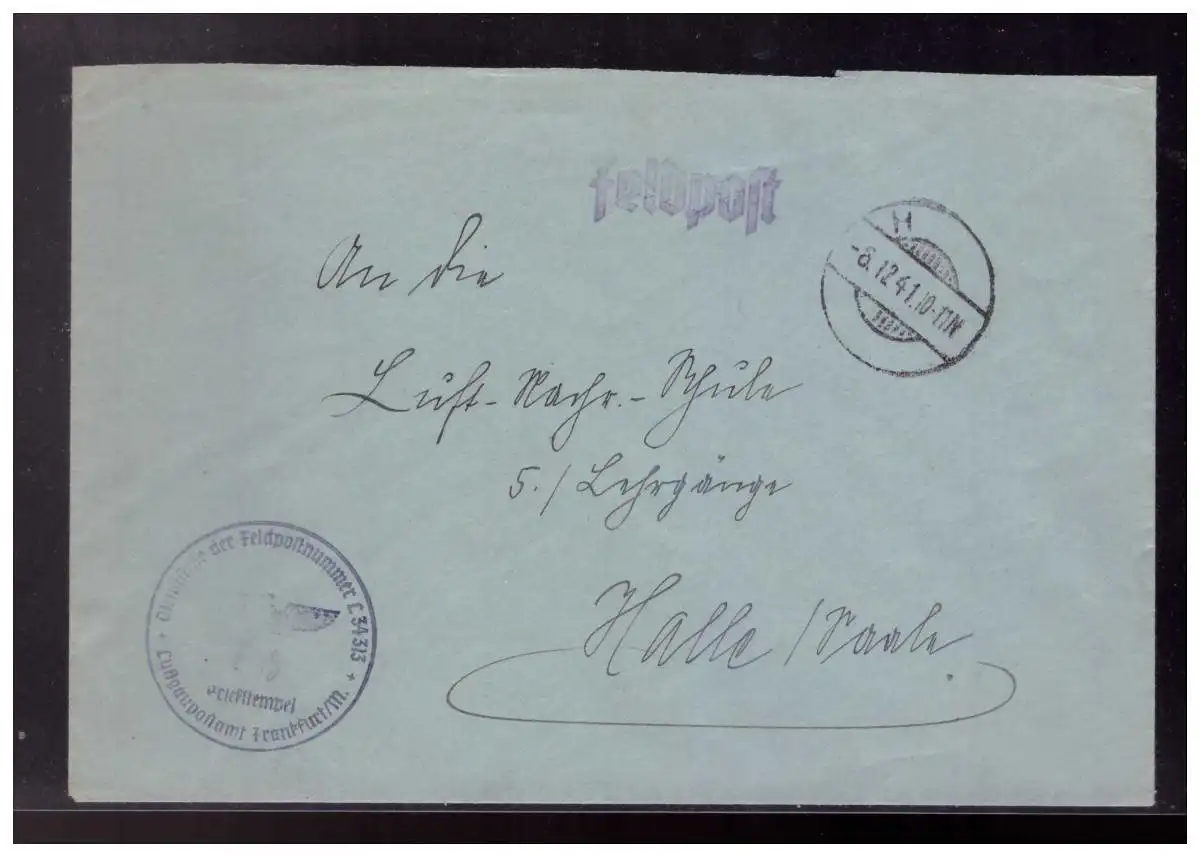 Feldpost
H
-6.12.41.10-11N
An die
Luft-Nachr.-Schule
5./Lehrgänge
Halle/Saale
der Feldpostnummer L 34313
Briefstempel
Luftgaupostamt Frankfurt/M.